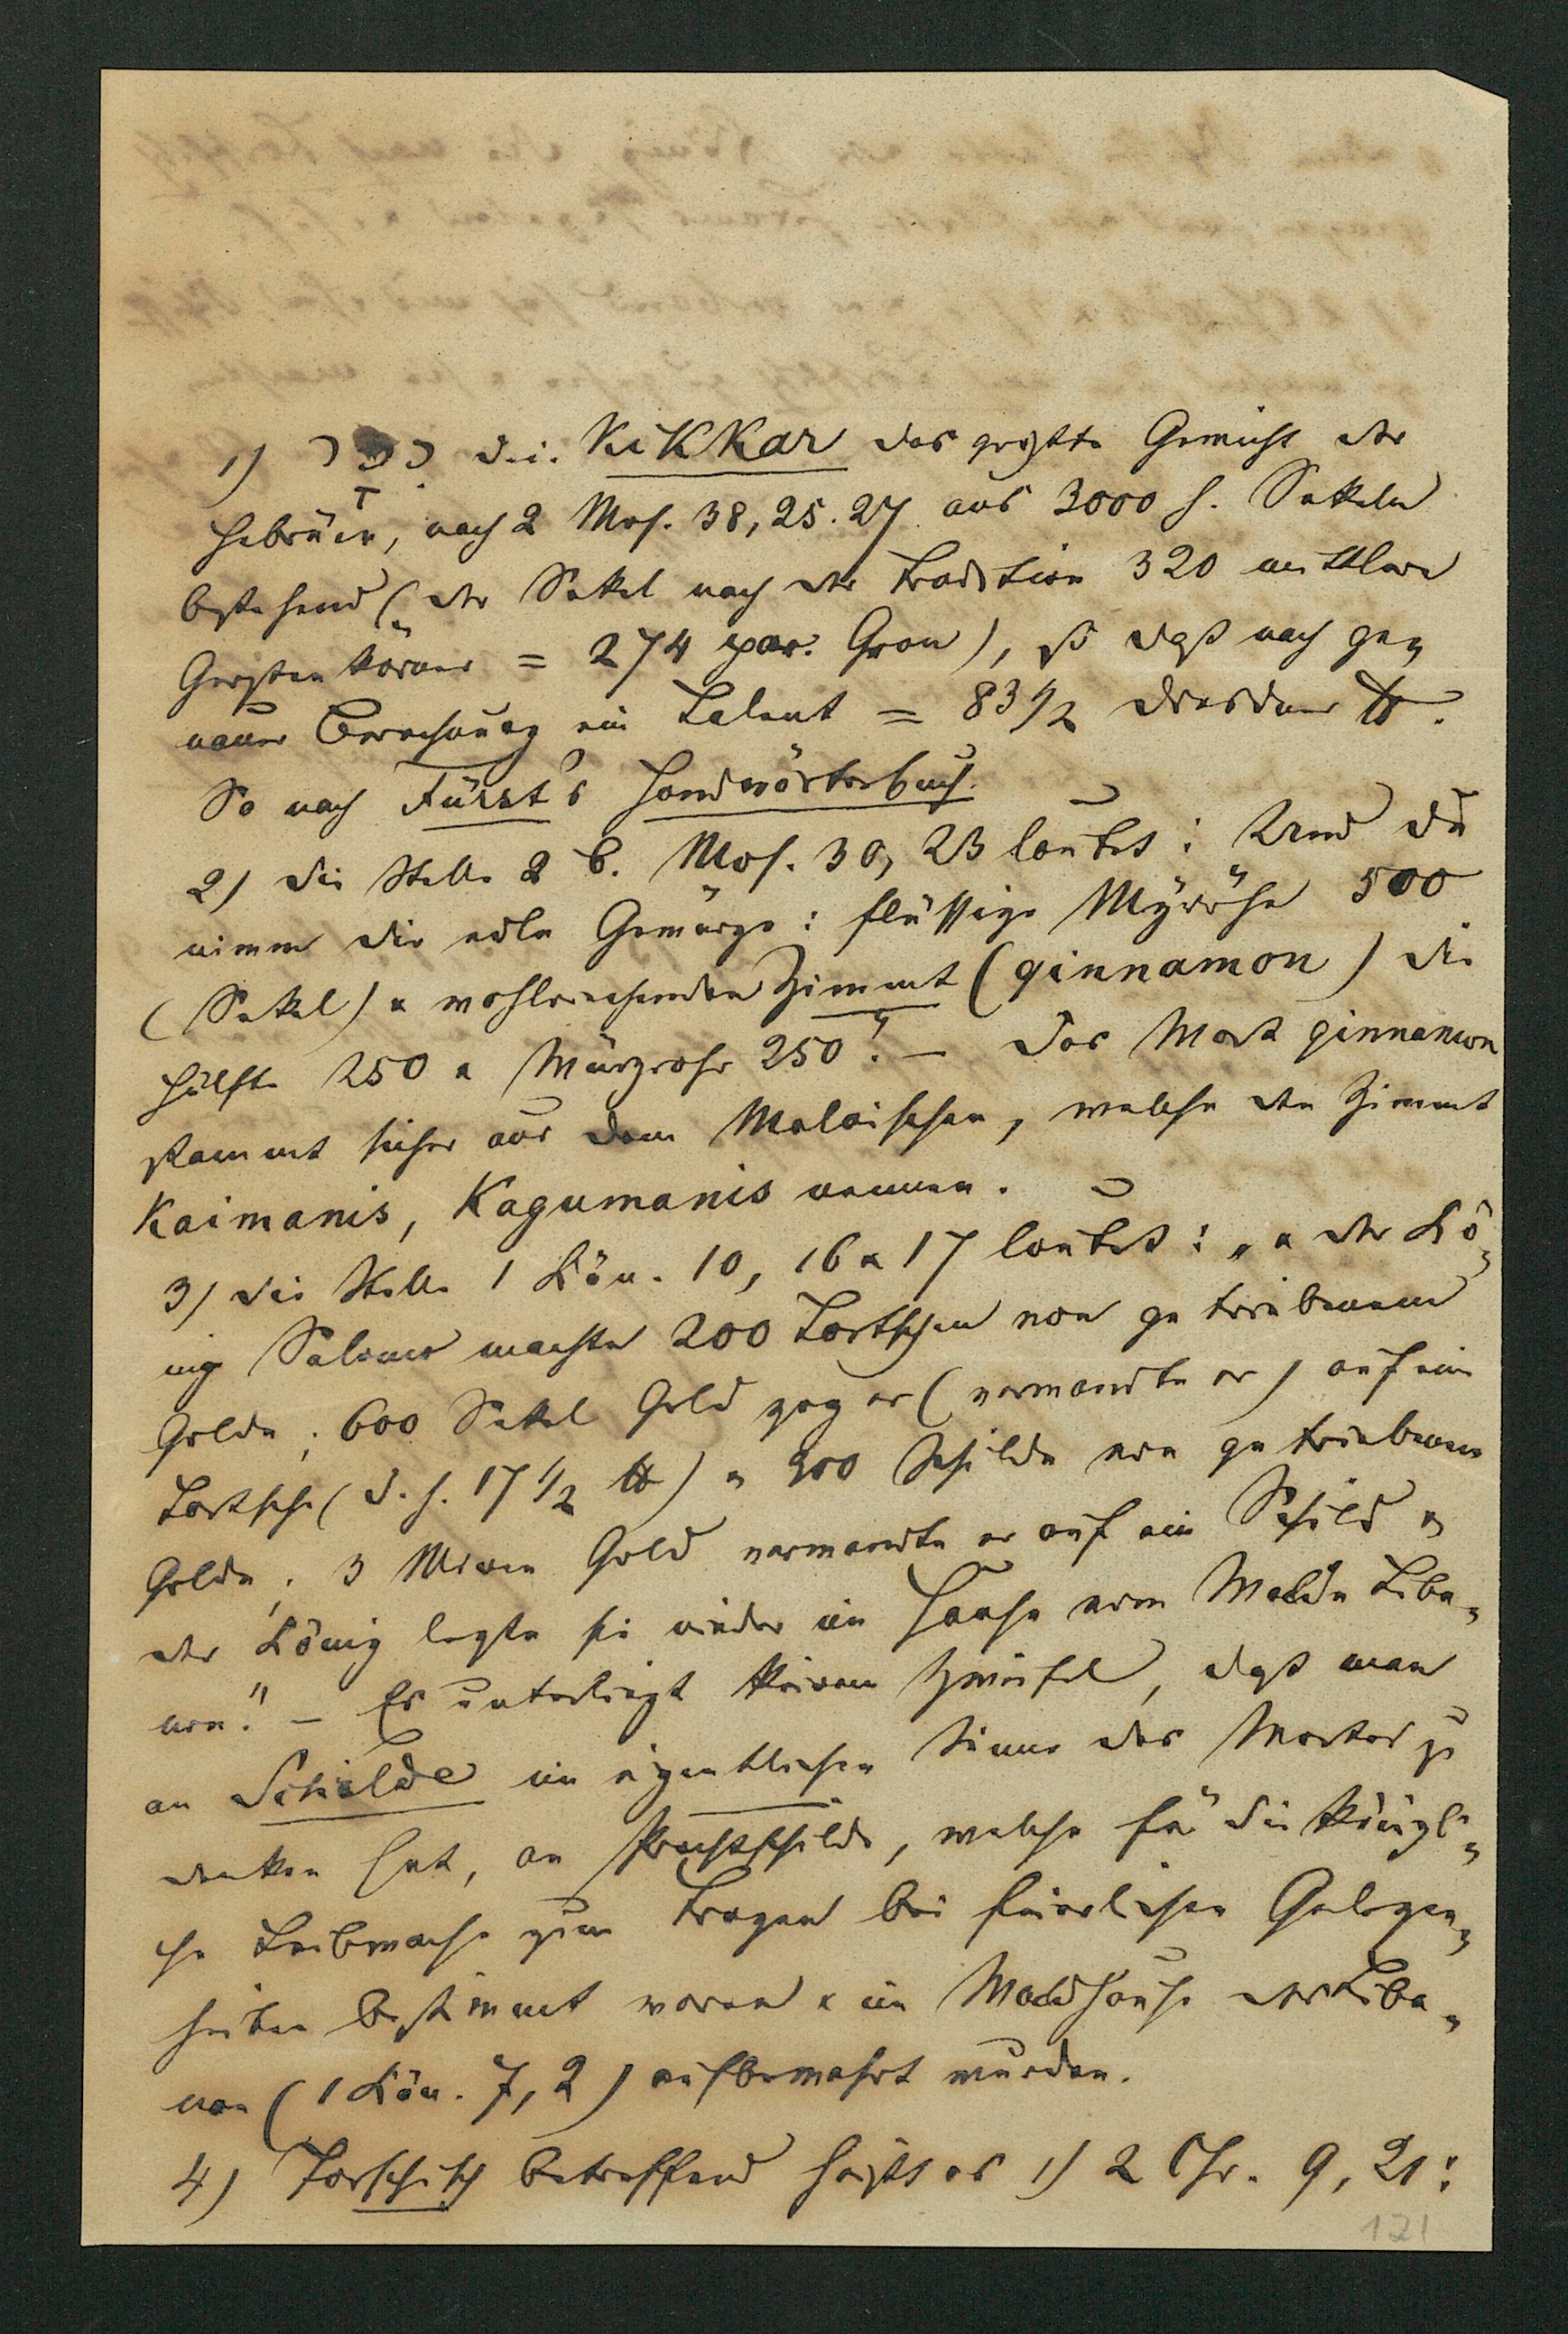 1) כִּכָּר d.i. Kikkar das größte Gewicht der
Hebräer, nach 2 Mos. 38, 25. 27 aus 3000 h. Sekeln
bestehend (der Sekel nach der Tradition 320 mittlere
Gerstenkörner = 274 par. Gran), so daß nach ge„
nauer Berechnung ein Talent = 83 1/2 Dresdner ℔.
So nach Fürst's Handwörterbuch.
2) Die Stelle 2 B. Mos. 30, 23 lautet: Und du
nimm dir edle Gewürze: flüssige Myrrhe 500
(Sekel) u wohlriechenden Zimmt (qinnamon) die
Hälfte 250 u Würzrohr 250". – Das Wort qinnamon
stammt sicher aus dem Malaischen, welche den Zimmt
Kaimanis, Kagumanis nennen.
3) Die Stelle 1 Kön. 10, 16 u 17 lautet: „u der Kö„
nig Salomo machte 200 Tartschen von getriebenem
Golde; 600 Sekel Gold zog er (verwandte er) auf eine
Tartsche (d. h. 17 1/2 ℔) u 300 Schilde von getriebenem
Golde; 3 Minen Gold verwandte er auf ein Schild u
der König legte sie nieder im Hause vom Walde Liba„
non." – Es unterliegt keinem Zweifel, daß man
an Schilde im eigentlichen Sinne des Wortes zu
denken hat, an Prachtschilde, welche für die königli„
che Leibwache zum Tragen bei feierlichen Gelegen„
heiten bestimmt waren u im Waldhause des Liba„
non (1 Kön. 7, 2) aufbewahrt wurden.
4) Tarschisch betreffend heißt es 1) 2 Chr. 9, 21:
121